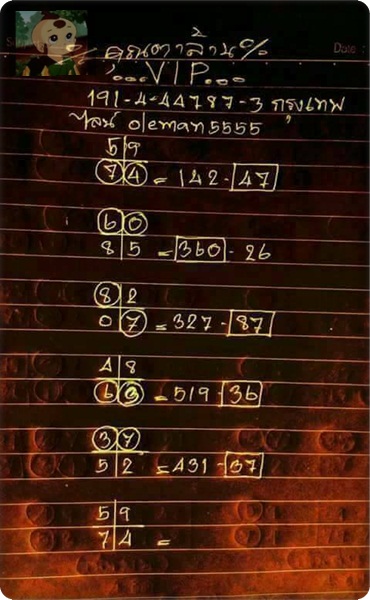 คุณตาล้าน%
...VIP...
191-4-44787-3 กรุงเทพ
ไลน์ oleman5555
5|9
7|4 = 142-47
6|0
8|5 = 360-26
8|2
0|7 = 327-87
4|8
6|3 = 519-36
3|7
5|2 = 431-37
5|9
7|4 =
Date :